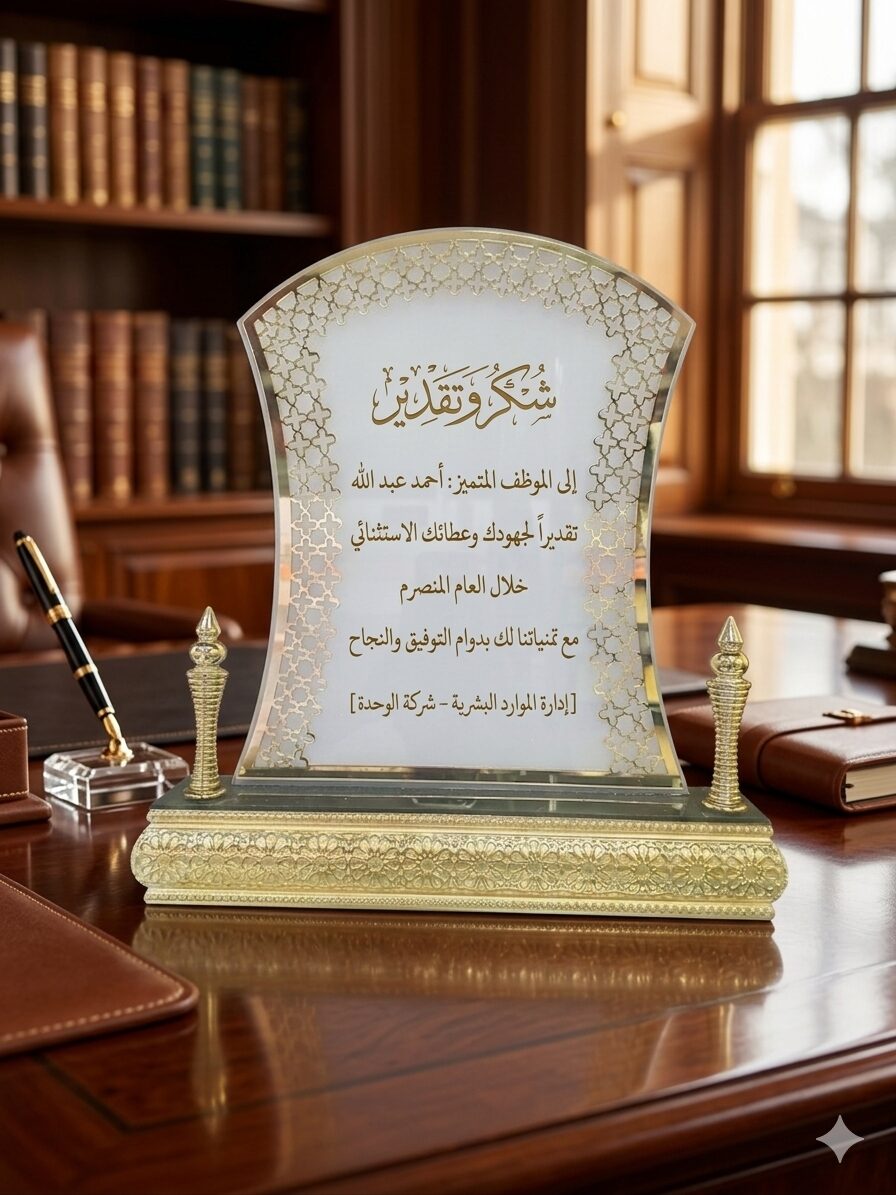 شُكْرٌ وَتَقْدِيرٌ
إلى الموظف المتميز: أحمد عبد الله
تقديراً لجهودك وعطائك الاستثنائي
خلال العام المنصرم
مع تمنياتنا لك بدوام التوفيق والنجاح
[إدارة الموارد البشرية – شركة الوحدة]